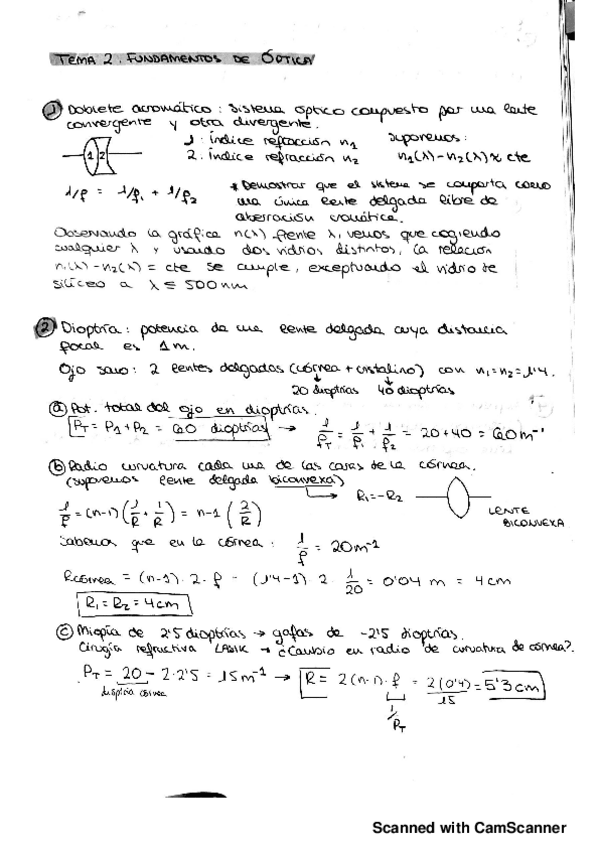 TEMA 2. FUNDAMENTOS DE ÓPTICA
① Doblete acromático: Sistema óptico compuesto por una lente
convergente y otra divergente.
1: índice refracción n1 suponemos:
2: índice refracción n2 n1(λ)-n2(λ) ≈ cte
1 2
1/f = 1/f1 + 1/f2 * Demostrar que el sistema se comporta como
una única lente delgada libre de
aberración cromática.
Observando la gráfica n(λ) frente λ, vemos que cogiendo
cualquier λ y usando dos vidrios distintos, la relación
n1(λ)-n2(λ) = cte se cumple, exceptuando el vidrio de
silíceo a λ ≤ 500nm
② Dioptría: potencia de una lente delgada cuya distancia
focal es 1m.
Ojo sano: 2 lentes delgadas (córnea + cristalino) con n1=n2=1'4.
20 dioptrías 40 dioptrías
ⓐ Pot. total del ojo en dioptrías.
PT = P1+P2 = 60 dioptrías → 1/fT = 1/f1 + 1/f2 = 20+40 = 60m⁻¹
ⓑ Radio curvatura cada una de las caras de la córnea.
(suponemos lente delgada biconvexa)
R1=-R2
LENTE
BICONVEXA
1/f = (n-1)(1/R + 1/R) = n-1 (2/R)
Sabemos que en la córnea: 1/f = 20m⁻¹
Rcórnea = (n-1)·2·f = (1'4-1)·2·1/20 = 0'04 m = 4cm
R1=R2=4cm
ⓒ Miopía de 2'5 dioptrías → gafas de -2'5 dioptrías.
Cirugía refractiva LASIK → ¿Cambio en radio de curvatura de córnea?.
PT = 20 - 2·2'5 = 15m⁻¹ → R = 2(n-1)·f = 2(0'4)/15 = 5'3cm
dioptría córnea
1/PT
Scanned with CamScanner